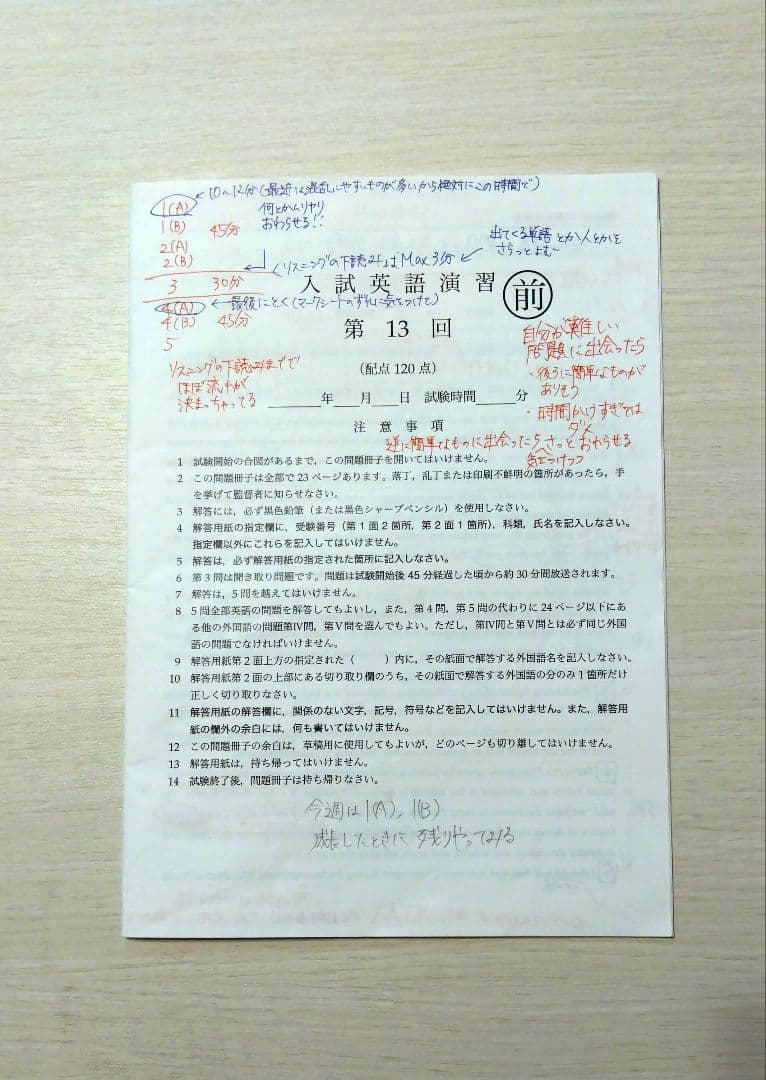 1(A) ← 10～12分(最近は混乱しやすいものが多いから絶対にこの時間で)
何とかムリヤリ
おわらせる!!
1(B)
2(A) 45分
2(B)
リスニングの下読みはMax3分
出てくる単語とか人とかを
さらっとよむ
3 30分
4(A) ← 最後にとく(マークシートのずれに気をつけて)
4(B) 45分
5
リスニングの下読みまでで
ほぼ流れが
決まっちゃってる
入試英語演習 前
第 13 回
(配点 120 点)
年 月 日 試験時間 分
自分が難しい
問題に出会ったら
・後ろに簡単なものが
ありそう
・時間かけすぎては
ダメ
逆に簡単なものに出会ったらさっとおわらせる
気をつけつつ
注意事項
1 試験開始の合図があるまで，この問題冊子を開いてはいけません。
2 この問題冊子は全部で 23 ページあります。落丁，乱丁または印刷不鮮明の箇所があったら，手
を挙げて監督者に知らせなさい。
3 解答には，必ず黒色鉛筆（または黒色シャープペンシル）を使用しなさい。
4 解答用紙の指定欄に，受験番号（第 1 面 2 箇所，第 2 面 1 箇所），科類，氏名を記入しなさい。
指定欄以外にこれらを記入してはいけません。
5 解答は，必ず解答用紙の指定された箇所に記入しなさい。
6 第 3 問は聞き取り問題です。問題は試験開始後 45 分経過した頃から約 30 分間放送されます。
7 解答は，5 問を越えてはいけません。
8 5 問全部英語の問題を解答してもよいし，また，第 4 問，第 5 問の代わりに 24 ページ以下にあ
る他の外国語の問題第Ⅳ問，第Ⅴ問を選んでもよい。ただし，第Ⅳ問と第Ⅴ問とは必ず同じ外国
語の問題でなければいけません。
9 解答用紙第 2 面上方の指定された（ ）内に，その紙面で解答する外国語名を記入しなさい。
10 解答用紙第 2 面の上部にある切り取り欄のうち，その紙面で解答する外国語の分のみ 1 箇所だけ
正しく切り取りなさい。
11 解答用紙の解答欄に，関係のない文字，記号，符号などを記入してはいけません。また，解答用
紙の欄外の余白には，何も書いてはいけません。
12 この問題冊子の余白は，草稿用に使用してもよいが，どのページも切り離してはいけません。
13 解答用紙は，持ち帰ってはいけません。
14 試験終了後，問題冊子は持ち帰りなさい。
今週は1(A), 1(B)
成長したときに 残りやってみる